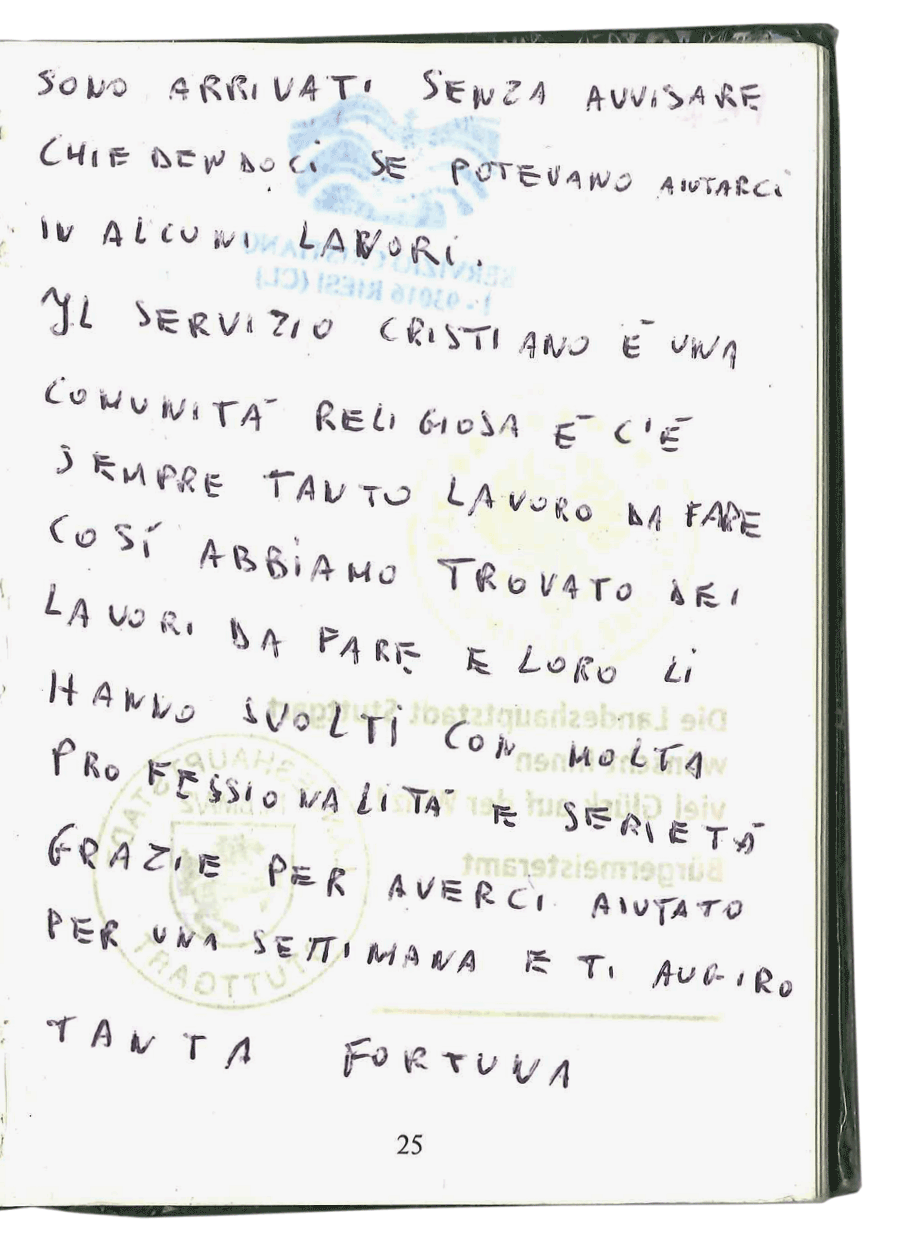 SONO ARRIVATI SENZA AVVISARE
CHIEDENDOCI SE POTEVANO AIUTARCI
IN ALCUNI LAVORI.
IL SERVIZIO CRISTIANO É UNA
COMUNITÁ RELIGIOSA E C'É
SEMPRE TANTO LAVORO DA FARE
COSÍ ABBIAMO TROVATO DEI
LAVORI DA FARE E LORO LI
HANNO SVOLTI CON MOLTA
PROFESSIONALITÁ E SERIETÁ
GRAZIE PER AVERCI AIUTATO
PER UNA SETTIMANA E TI AUGIRO
TANTA FORTUNA
SERVIZIO CRISTIANO
I - 93016 RIESI (CL)
Die Landeshauptstadt Stuttgart
wünscht Ihnen
viel Glück auf der
Bürgermeisteramt
STUTTGART
25